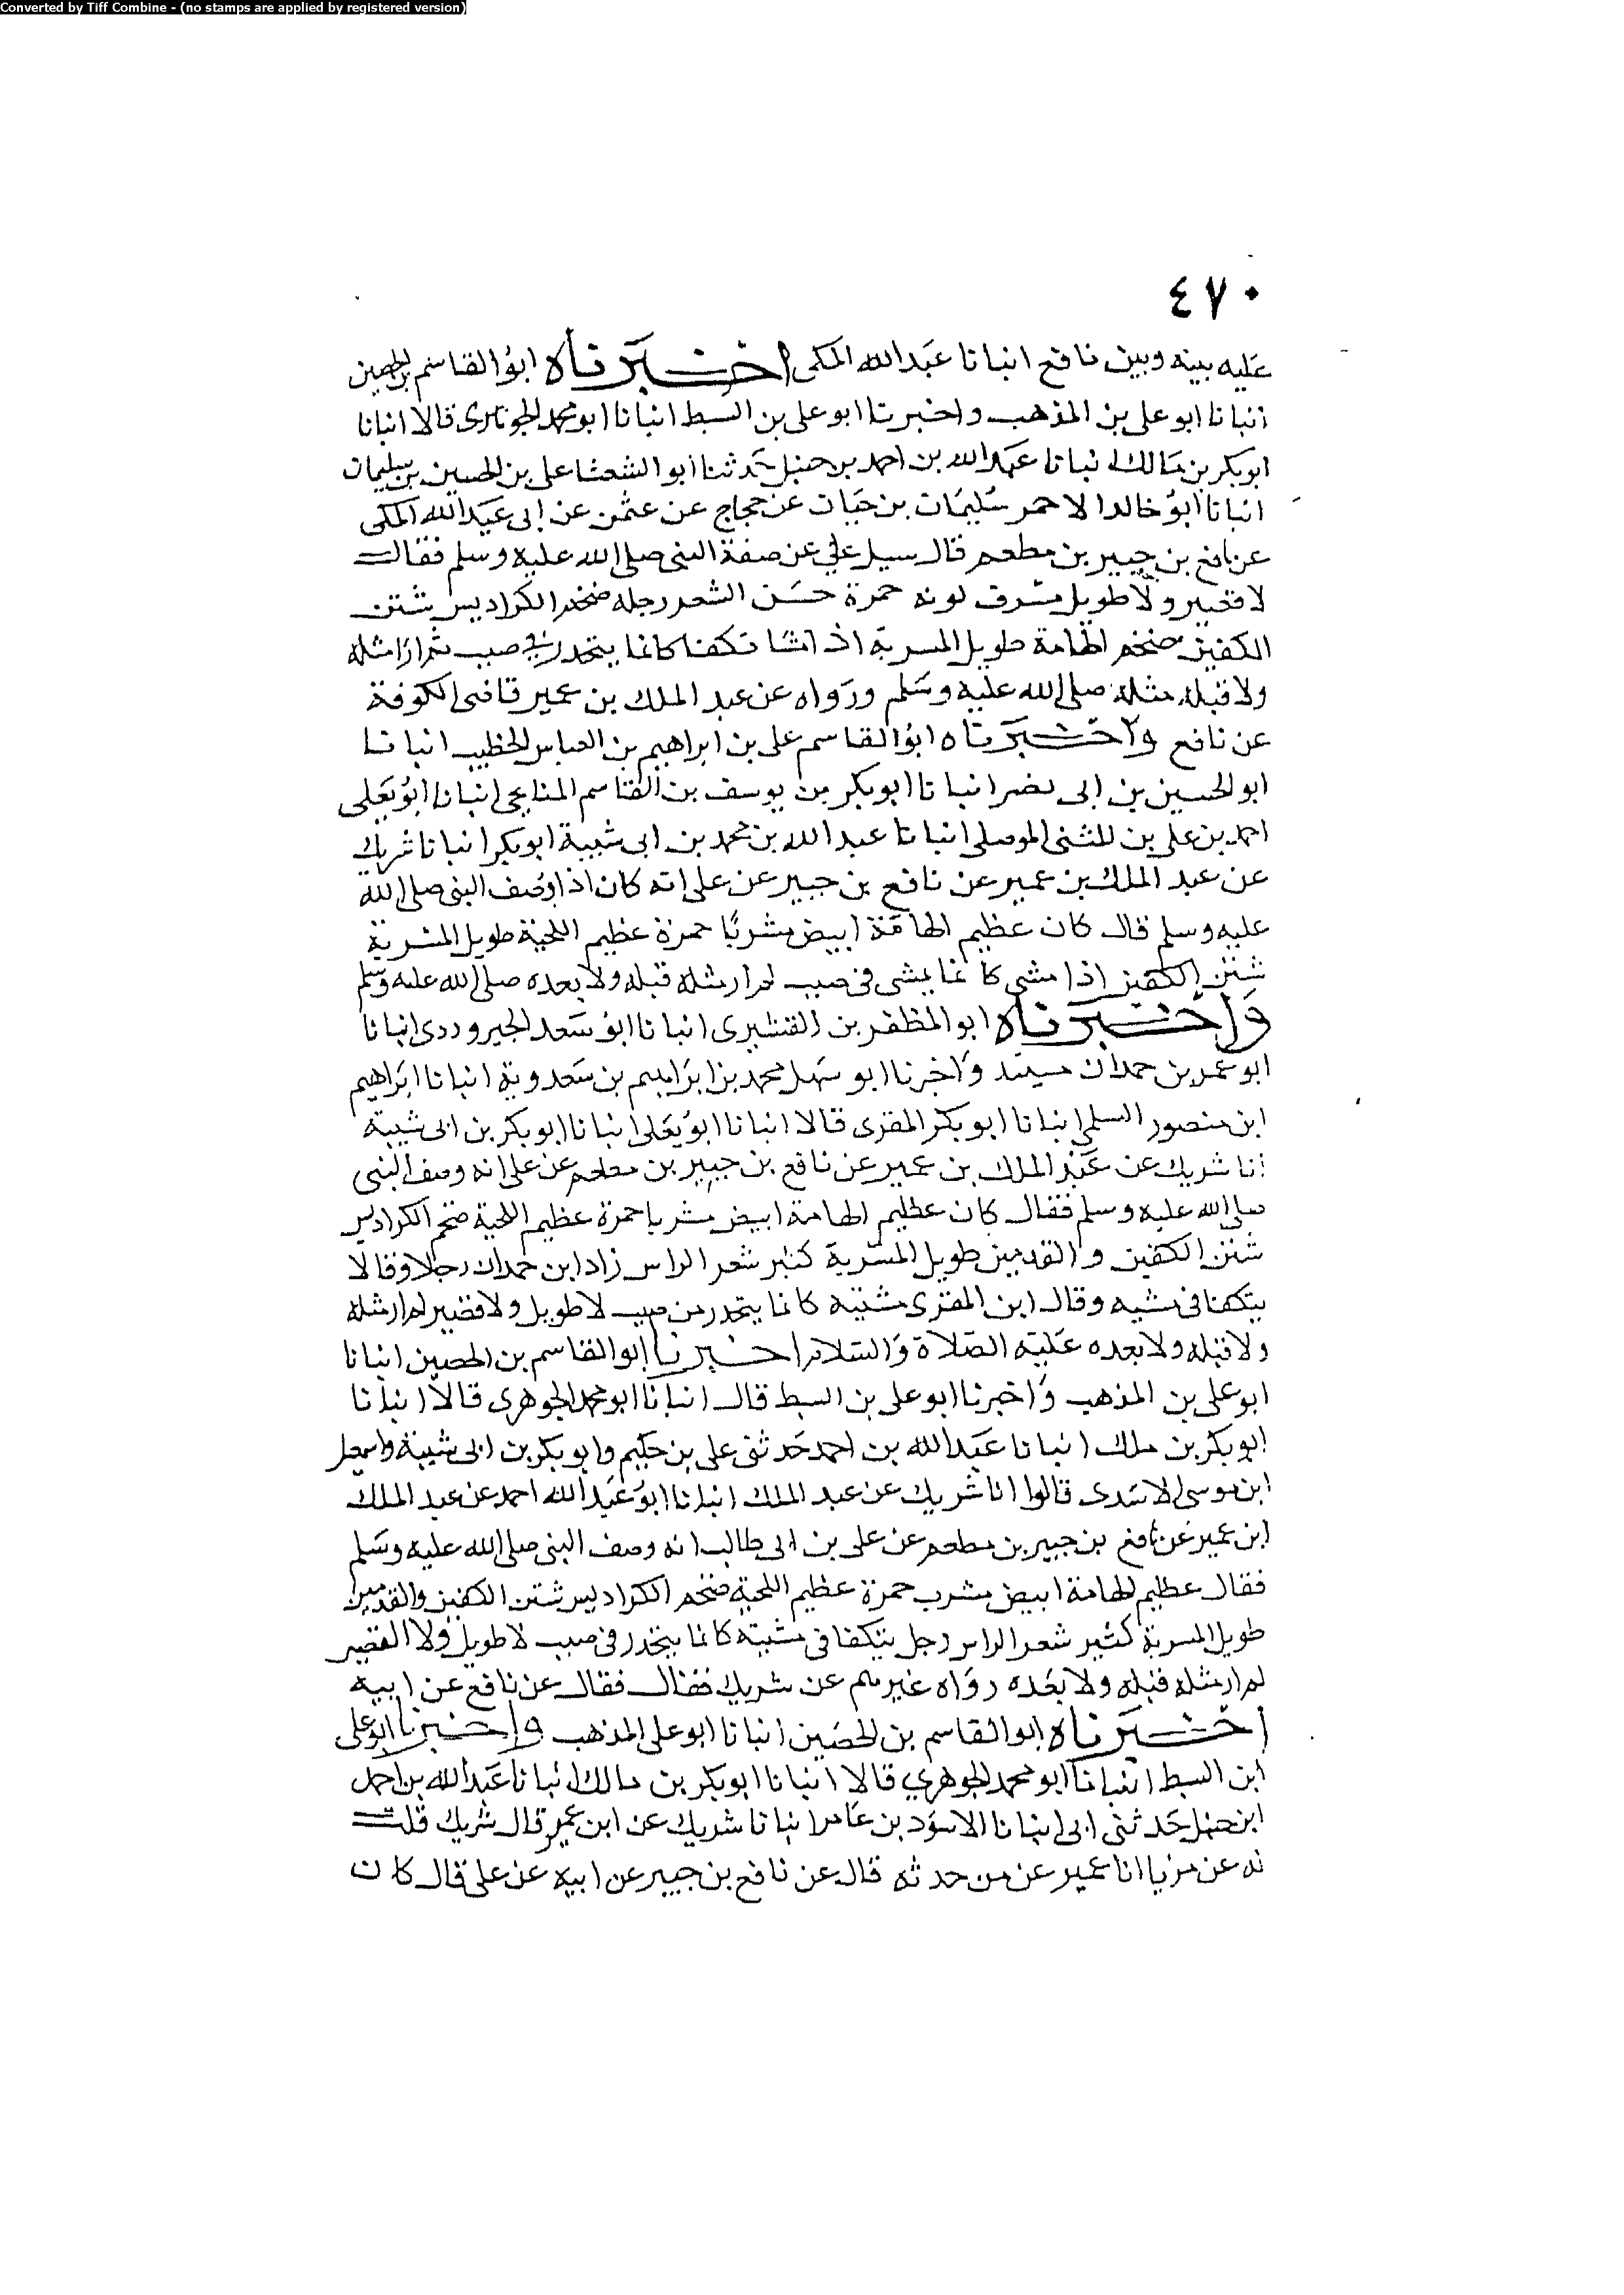 Converted by Tiff Combine - (no stamps are applied by registered version)
٤٧٠
عليه بينه وبين نافع انبانا عبد الله المكى اخبرناه ابو القاسم بن الحصين
انبانا ابو على بن المذهب واخبرنا ابو على بن السبط انبانا ابو محمد الجوهرى قالا انبانا
ابو بكر بن مالك انبانا عبد الله بن احمد بن حنبل حدثنا ابو الشعثا على بن الحسين بن سليمان
انبانا ابو خالد الاحمر سليمان بن حيان عن حجاج عن عثمن عن ابى عبد الله المكى
عن نافع بن جبير بن مطعم قال سيل على عن صفة النبى صلى الله عليه وسلم فقال
لا قصير ولا طويل مشرف لونه حمرة حسن الشعر رجله ضخم الكراديس شتن
الكفين ضخم الهامة طويل المسربة اذا مشا تكفا كانما يتحدر فى صبب لم ار مثله
ولا قبله مثله صلى الله عليه وسلم ورواه عن عبد الملك بن عمير قاضى الكوفة
عن نافع واخبرناه ابو القاسم على بن ابراهيم بن العباس الخطيب انبانا
ابو الحسين بن ابى نصر انبانا ابو بكر بن يوسف بن القاسم الميانجى انبانا ابو يعلى
احمد بن على بن المثنى الموصلى انبانا عبد الله بن محمد بن ابى شيبة ابو بكر انبانا شريك
عن عبد الملك بن عمير عن نافع بن جبير عن على انه كان اذا وصف النبى صلى الله
عليه وسلم قال كان عظيم الهامة ابيض مشربا حمرة عظيم اللحية طويل المسربة
شثن الكفين اذا مشى كانما يمشى فى صبب لم ار مثله قبله ولا بعده صلى الله عليه وسلم
واخبرناه ابو المظفر بن القشيرى انبانا ابو سعد الجيرودى انبانا
ابو عمر بن حمدان واخبرنا ابو سهل محمد بن ابراهيم بن سعدوية انبانا ابراهيم
ابن منصور السلمى انبانا ابو بكر المقرى قالا انبانا ابو يعلى انبانا ابو بكر بن ابى شيبة
انا شريك عن عبد الملك بن عمير عن نافع بن جبير بن مطعم عن على انه وصف النبى
صلى الله عليه وسلم فقال كان عظيم الهامة ابيض مشربا حمرة عظيم اللحية ضخم الكراديس
شثن الكفين والقدمين طويل المسربة كثير شعر الراس زاد ابن حمدان رجلا وقالا
يتكفا فى مشيه وقال ابن المقرى مشيته كانما يتحدر من صبب لا طويل ولا قصير لم ار مثله
ولا قبله ولا بعده عليه الصلاة والسلام اخبرنا ابو القاسم بن الحصين انبانا
ابو على بن المذهب واخبرنا ابو على بن السبط قال انبانا ابو محمد الجوهرى قالا انبانا
ابو بكر بن ملك انبانا عبد الله بن احمد حدثنى على بن حكيم وابو بكر بن ابى شيبة واسمعيل
ابن موسى الاسدى قالوا انا شريك عن عبد الملك انبانا ابو عبد الله احمد عن عبد الملك
ابن عمير عن نافع بن جبير بن مطعم عن على بن ابى طالب انه وصف النبى صلى الله عليه وسلم
فقال عظيم الهامة ابيض مشرب حمرة عظيم اللحية ضخم الكراديس شثن الكفين والقدمين
طويل المسربة كثير شعر الراس رجل يتكفا فى مشيته كانما يتحدر فى صبب لا طويل ولا القصير
لم ار مثله قبله ولا بعده رواه غيرهم عن شريك فقال فقال عن نافع عن ابيه
اخبرناه ابو القاسم بن الحصين انبانا ابو على المذهب واخبرنا ابو على
ابن السبط انبانا ابو محمد الجوهرى قالا انبانا ابو بكر بن مالك انبانا عبد الله بن احمد
ابن حنبل حدثنى ابى انبانا الاسود بن عامر انبانا شريك عن ابن عمير قال شريك قلت
له عن من يا انا عمير عن من حدثه قال عن نافع بن جبير عن ابيه عن على قال كان